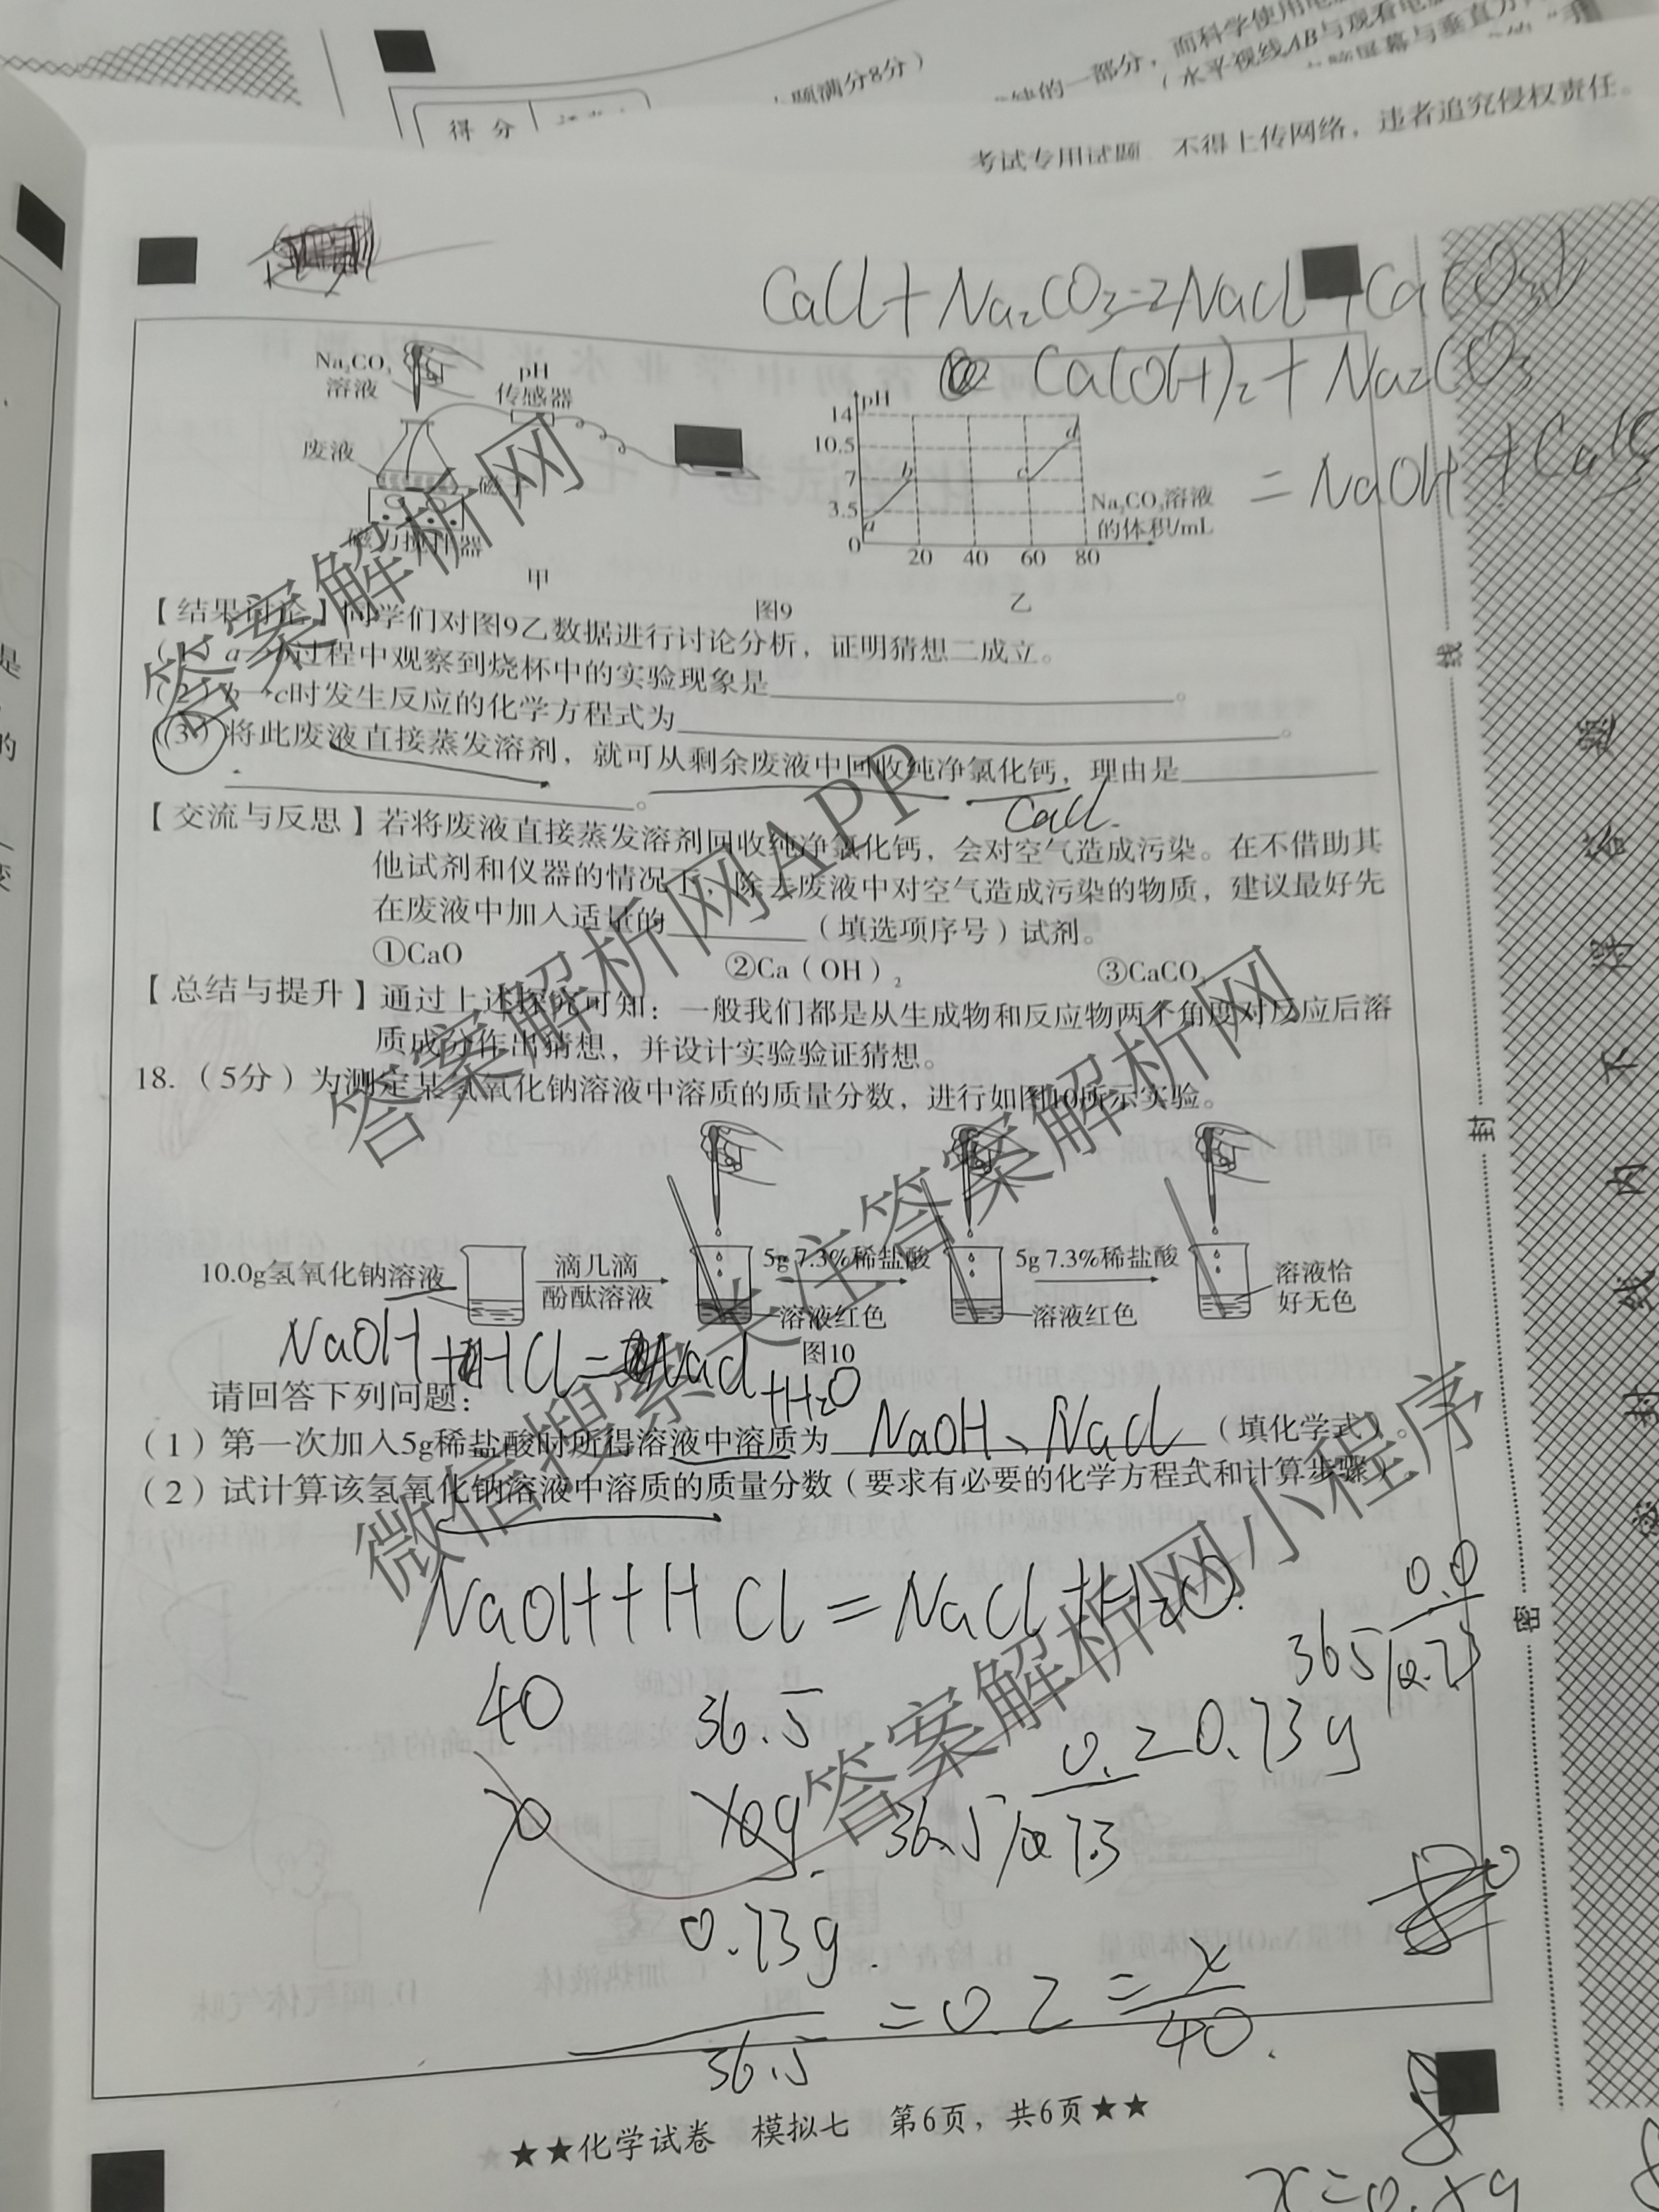 得 分
题满分8分）
的一部分，而科学使用电
（水平视线AB与观看电
屏幕与垂直方
考试专用试题 不得上传网络，违者追究侵权责任。
CaCl+Na₂CO₃=2NaCl+CaCO₃↓
Ca(OH)₂+Na₂CO₃
=NaOH+CaCO₃
Na₂CO₃
溶液
pH
传感器
废液
磁力搅拌器
甲
pH
14
10.5
7
3.5
0
a
b
c
d
20 40 60 80
Na₂CO₃溶液
的体积/mL
乙
图9
【结果讨论】同学们对图9乙数据进行讨论分析，证明猜想二成立。
（1）a→b过程中观察到烧杯中的实验现象是
。
（2）b→c时发生反应的化学方程式为
。
（3）将此废液直接蒸发溶剂，就可从剩余废液中回收纯净氯化钙，理由是
。
CaCl.
【交流与反思】若将废液直接蒸发溶剂回收纯净氯化钙，会对空气造成污染。在不借助其
他试剂和仪器的情况下，除去废液中对空气造成污染的物质，建议最好先
在废液中加入适量的（填选项序号）试剂。
①CaO ②Ca（OH）₂ ③CaCO₃
【总结与提升】通过上述探究可知：一般我们都是从生成物和反应物两个角度对反应后溶
质成分作出猜想，并设计实验验证猜想。
18.（5分）为测定某氢氧化钠溶液中溶质的质量分数，进行如图10所示实验。
10.0g氢氧化钠溶液
滴几滴
酚酞溶液
5g 7.3%稀盐酸
溶液红色
5g 7.3%稀盐酸
溶液红色
溶液恰
好无色
图10
NaOH+HCl=NaCl
+H₂O
请回答下列问题：
（1）第一次加入5g稀盐酸时所得溶液中溶质为 NaOH、NaCl （填化学式）。
（2）试计算该氢氧化钠溶液中溶质的质量分数（要求有必要的化学方程式和计算步骤）
NaOH+HCl=NaCl+H₂O.
40 36.5
0.73g
0.73g.
36.5
=0.2=
x
40.
线
封
密
题
答
得
不
内
线
封
密
★★化学试卷 模拟七 第6页，共6页★★
答案解析网
答案解析网APP
微信搜索关注答案解析网
答案解析网小程序